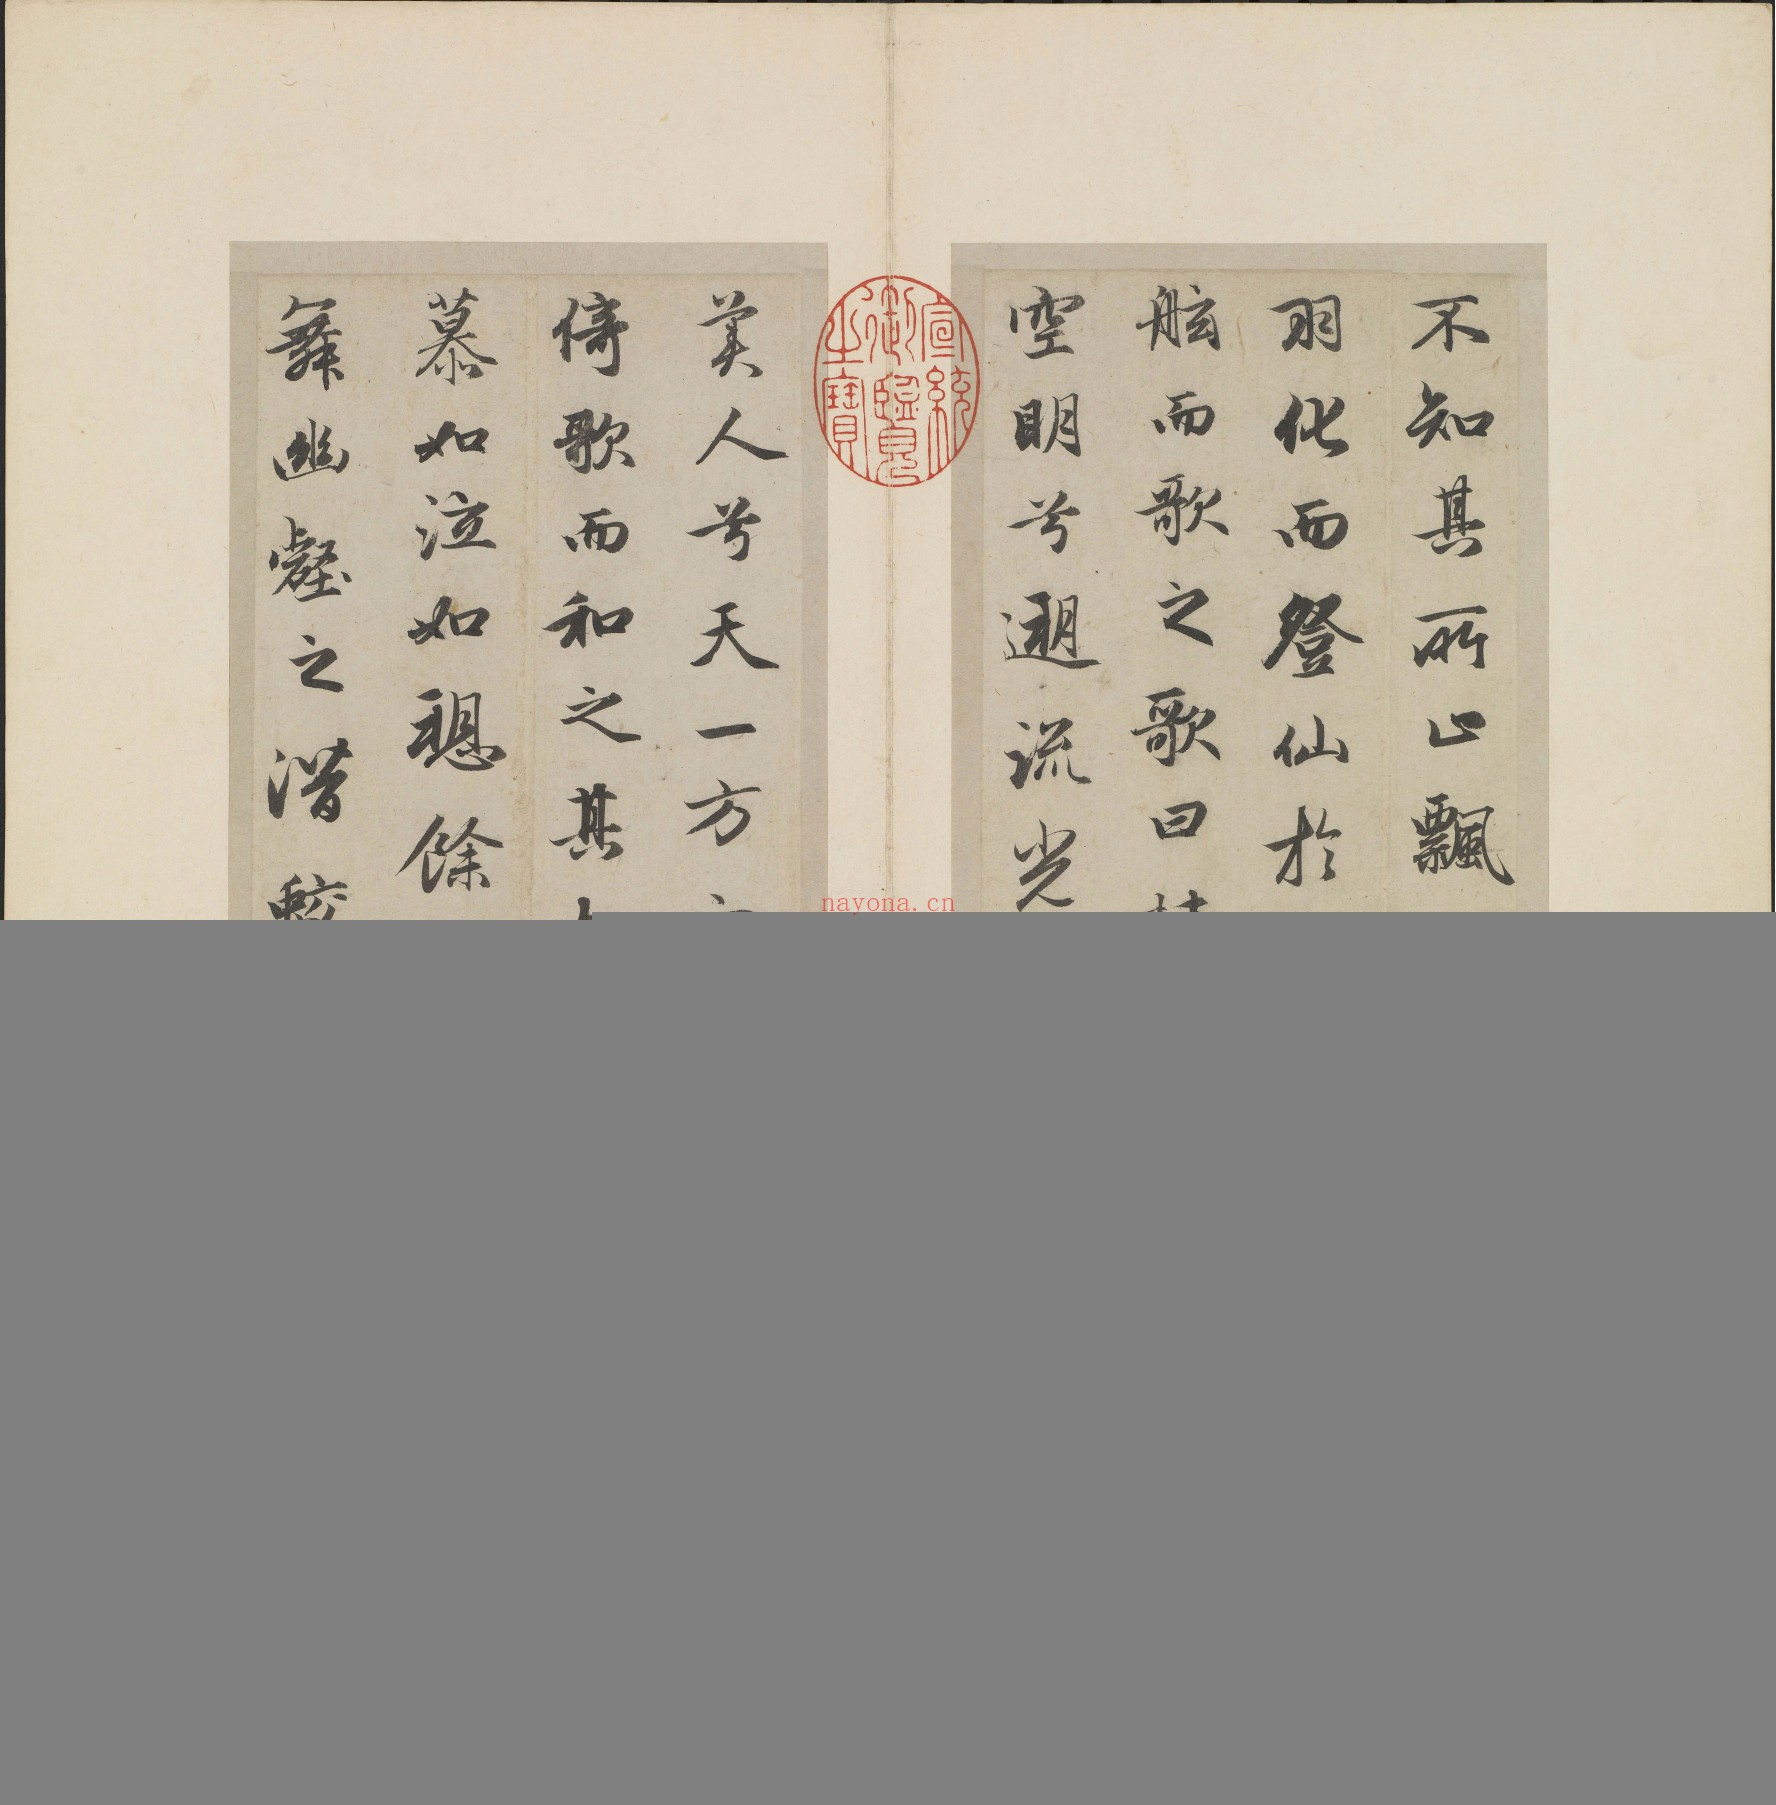 不知其所止飄
羽化而登仙於
舷而歌之歌曰
空明兮遡流光
美人兮天一方
倚歌而和之其
慕如泣如㥯餘
舞幽壑之潛蛟
宣統御覽之寶
nayona.cn